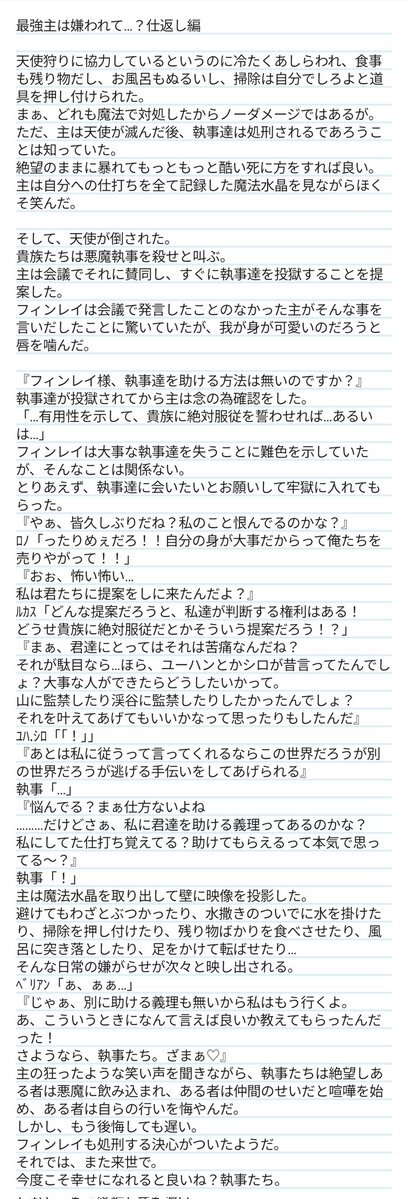 最強主は嫌われて…？仕返し編
天使狩りに協力しているというのに冷たくあしらわれ、食事
も残り物だし、お風呂もぬるいし、掃除は自分でしろよと道
具を押し付けられた。
まぁ、どれも魔法で対処したからノーダメージではあるが。
ただ、主は天使が滅んだ後、執事達は処刑されるであろうこ
とは知っていた。
絶望のままに暴れてもっともっと酷い死に方をすれば良い。
主は自分への仕打ちを全て記録した魔法水晶を見ながらほく
そ笑んだ。
そして、天使が倒された。
貴族たちは悪魔執事を殺せと叫ぶ。
主は会議でそれに賛同し、すぐに執事達を投獄することを提
案した。
フィンレイは会議で発言したことのなかった主がそんな事を
言いだしたことに驚いていたが、我が身が可愛いのだろうと
唇を噛んだ。
『フィンレイ様、執事達を助ける方法は無いのですか？』
執事達が投獄されてから主は念の為確認をした。
「…有用性を示して、貴族に絶対服従を誓わせれば…あるい
は…」
フィンレイは大事な執事達を失うことに難色を示していた
が、そんなことは関係ない。
とりあえず、執事達に会いたいとお願いして牢獄に入れても
らった。
『やぁ、皆久しぶりだね？私のこと恨んでるのかな？』
ﾛﾉ「ったりめぇだろ！！自分の身が大事だからって俺たちを
売りやがって！！」
『おぉ、怖い怖い…
私は君たちに提案をしに来たんだよ？』
ﾙｶｽ「どんな提案だろうと、私達が判断する権利はある！
どうせ貴族に絶対服従だとかそういう提案だろう！？」
『まぁ、君達にとってはそれは苦痛なんだね？
それが駄目なら…ほら、ユーハンとかシロが昔言ってたんでし
ょ？大事な人ができたらどうしたいかって。
山に監禁したり渓谷に監禁したりしたかったんでしょ？
それを叶えてあげてもいいかなって思ったりもしたんだ』
ﾕﾊ.ｼﾛ「「！」」
『あとは私に従うって言ってくれるならこの世界だろうが別
の世界だろうが逃げる手伝いをしてあげられる』
執事「…」
『悩んでる？まぁ仕方ないよね
………だけどさぁ、私に君達を助ける義理ってあるのかな？
私にしてた仕打ち覚えてる？助けてもらえるって本気で思っ
てる〜？』
執事「！」
主は魔法水晶を取り出して壁に映像を投影した。
避けてもわざとぶつかったり、水撒きのついでに水を掛けた
り、掃除を押し付けたり、残り物ばかりを食べさせたり、風
呂に突き落としたり、足をかけて転ばせたり…
そんな日常の嫌がらせが次々と映し出される。
ﾍﾞﾘｱﾝ「ぁ、ぁぁ…」
『じゃぁ、別に助ける義理も無いから私はもう行くよ。
あ、こういうときになんて言えば良いか教えてもらったんだ
った！
さようなら、執事たち。ざまぁ♡』
主の狂ったような笑い声を聞きながら、執事たちは絶望しあ
る者は悪魔に飲み込まれ、ある者は仲間のせいだと喧嘩を始
め、ある者は自らの行いを悔やんだ。
しかし、もう後悔しても遅い。
フィンレイも処刑する決心がついたようだ。
それでは、また来世で。
今度こそ幸せになれると良いね？執事たち。